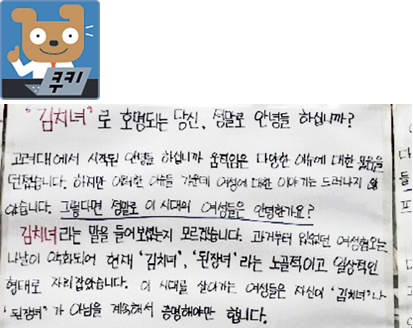 쿠키
"김치녀"로 호명되는 당신, 정말로 안녕들 하십니까?
고려대에서 시작된 안녕들 하십니까 움직임은 다양한 이슈에 대한 물음을
던졌습니다. 하지만 이러한 이슈들 가운데 여성에 대한 이야기는 드러나지 않
았습니다. 그렇다면 정말로 이 시대의 여성들은 안녕한가요?
김치녀라는 말을 들어보셨는지 모르겠습니다. 과거부터 있었던 여성혐오는
나날이 악화되어 현재 '김치녀', '된장녀'라는 노골적이고 일상적인
형태로 자리잡았습니다. 이 시대를 살아가는 여성들은 자신이 "김치녀"나
"된장녀"가 아님을 계속해서 증명해야만 합니다.